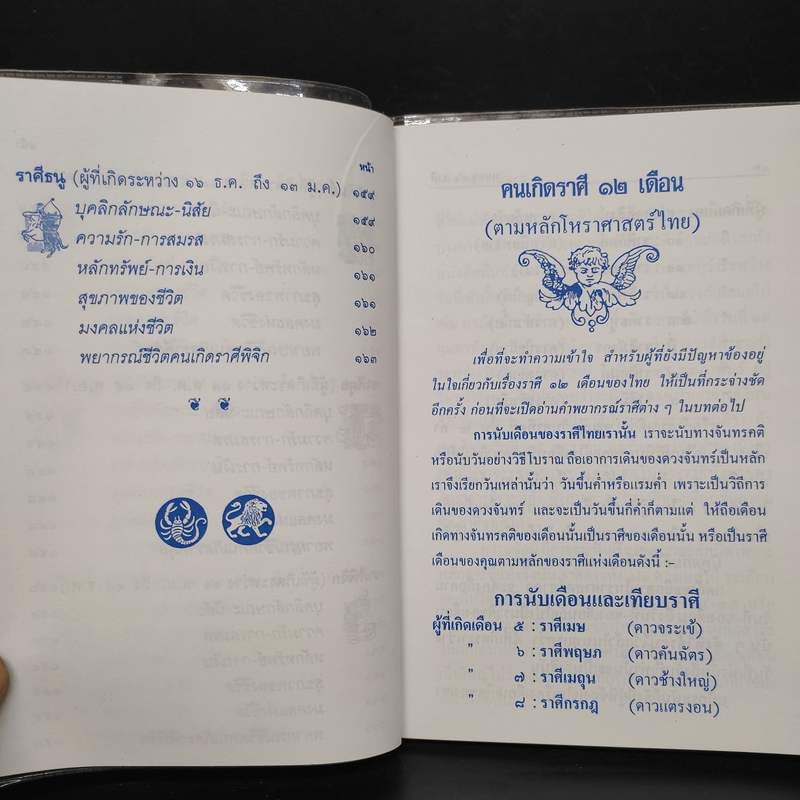 หน้า
ราศีธนู (ผู้ที่เกิดระหว่าง ๑๖ ธ.ค. ถึง ๑๓ ม.ค.) ๑๕๙
บุคลิกลักษณะ-นิสัย ๑๕๙
ความรัก-การสมรส ๑๖๐
หลักทรัพย์-การเงิน ๑๖๑
สุขภาพของชีวิต ๑๖๑
มงคลแห่งชีวิต ๑๖๒
พยากรณ์ชีวิตคนเกิดราศีพิจิก ๑๖๓
คนเกิดราศี ๑๒ เดือน
(ตามหลักโหราศาสตร์ไทย)
เพื่อที่จะทำความเข้าใจ สำหรับผู้ที่ยังมีปัญหาข้องอยู่
ในใจเกี่ยวกับเรื่องราศี ๑๒ เดือนของไทย ให้เป็นที่กระจ่างชัด
อีกครั้ง ก่อนที่จะเปิดอ่านคำพยากรณ์ราศีต่าง ๆ ในบทต่อไป
การนับเดือนของราศีไทยเรานั้น เราจะนับทางจันทรคติ
หรือนับวันอย่างวิธีโบราณ ถือเอาการเดินของดวงจันทร์เป็นหลัก
เราจึงเรียกวันเหล่านั้นว่า วันขึ้นค่ำหรือแรมค่ำ เพราะเป็นวิถีการ
เดินของดวงจันทร์ และจะเป็นวันขึ้นกี่ค่ำก็ตามแต่ ให้ถือเดือน
เกิดทางจันทรคติของเดือนนั้นเป็นราศีของเดือนนั้น หรือเป็นราศี
เดือนของคุณตามหลักของราศีแห่งเดือนดังนี้ :-
การนับเดือนและเทียบราศี
ผู้ที่เกิดเดือน ๕ : ราศีเมษ (ดาวจระเข้)
" ๖ : ราศีพฤษภ (ดาวคันฉัตร)
" ๗ : ราศีเมถุน (ดาวช้างใหญ่)
" ๘ : ราศีกรกฎ (ดาวแตรงอน)